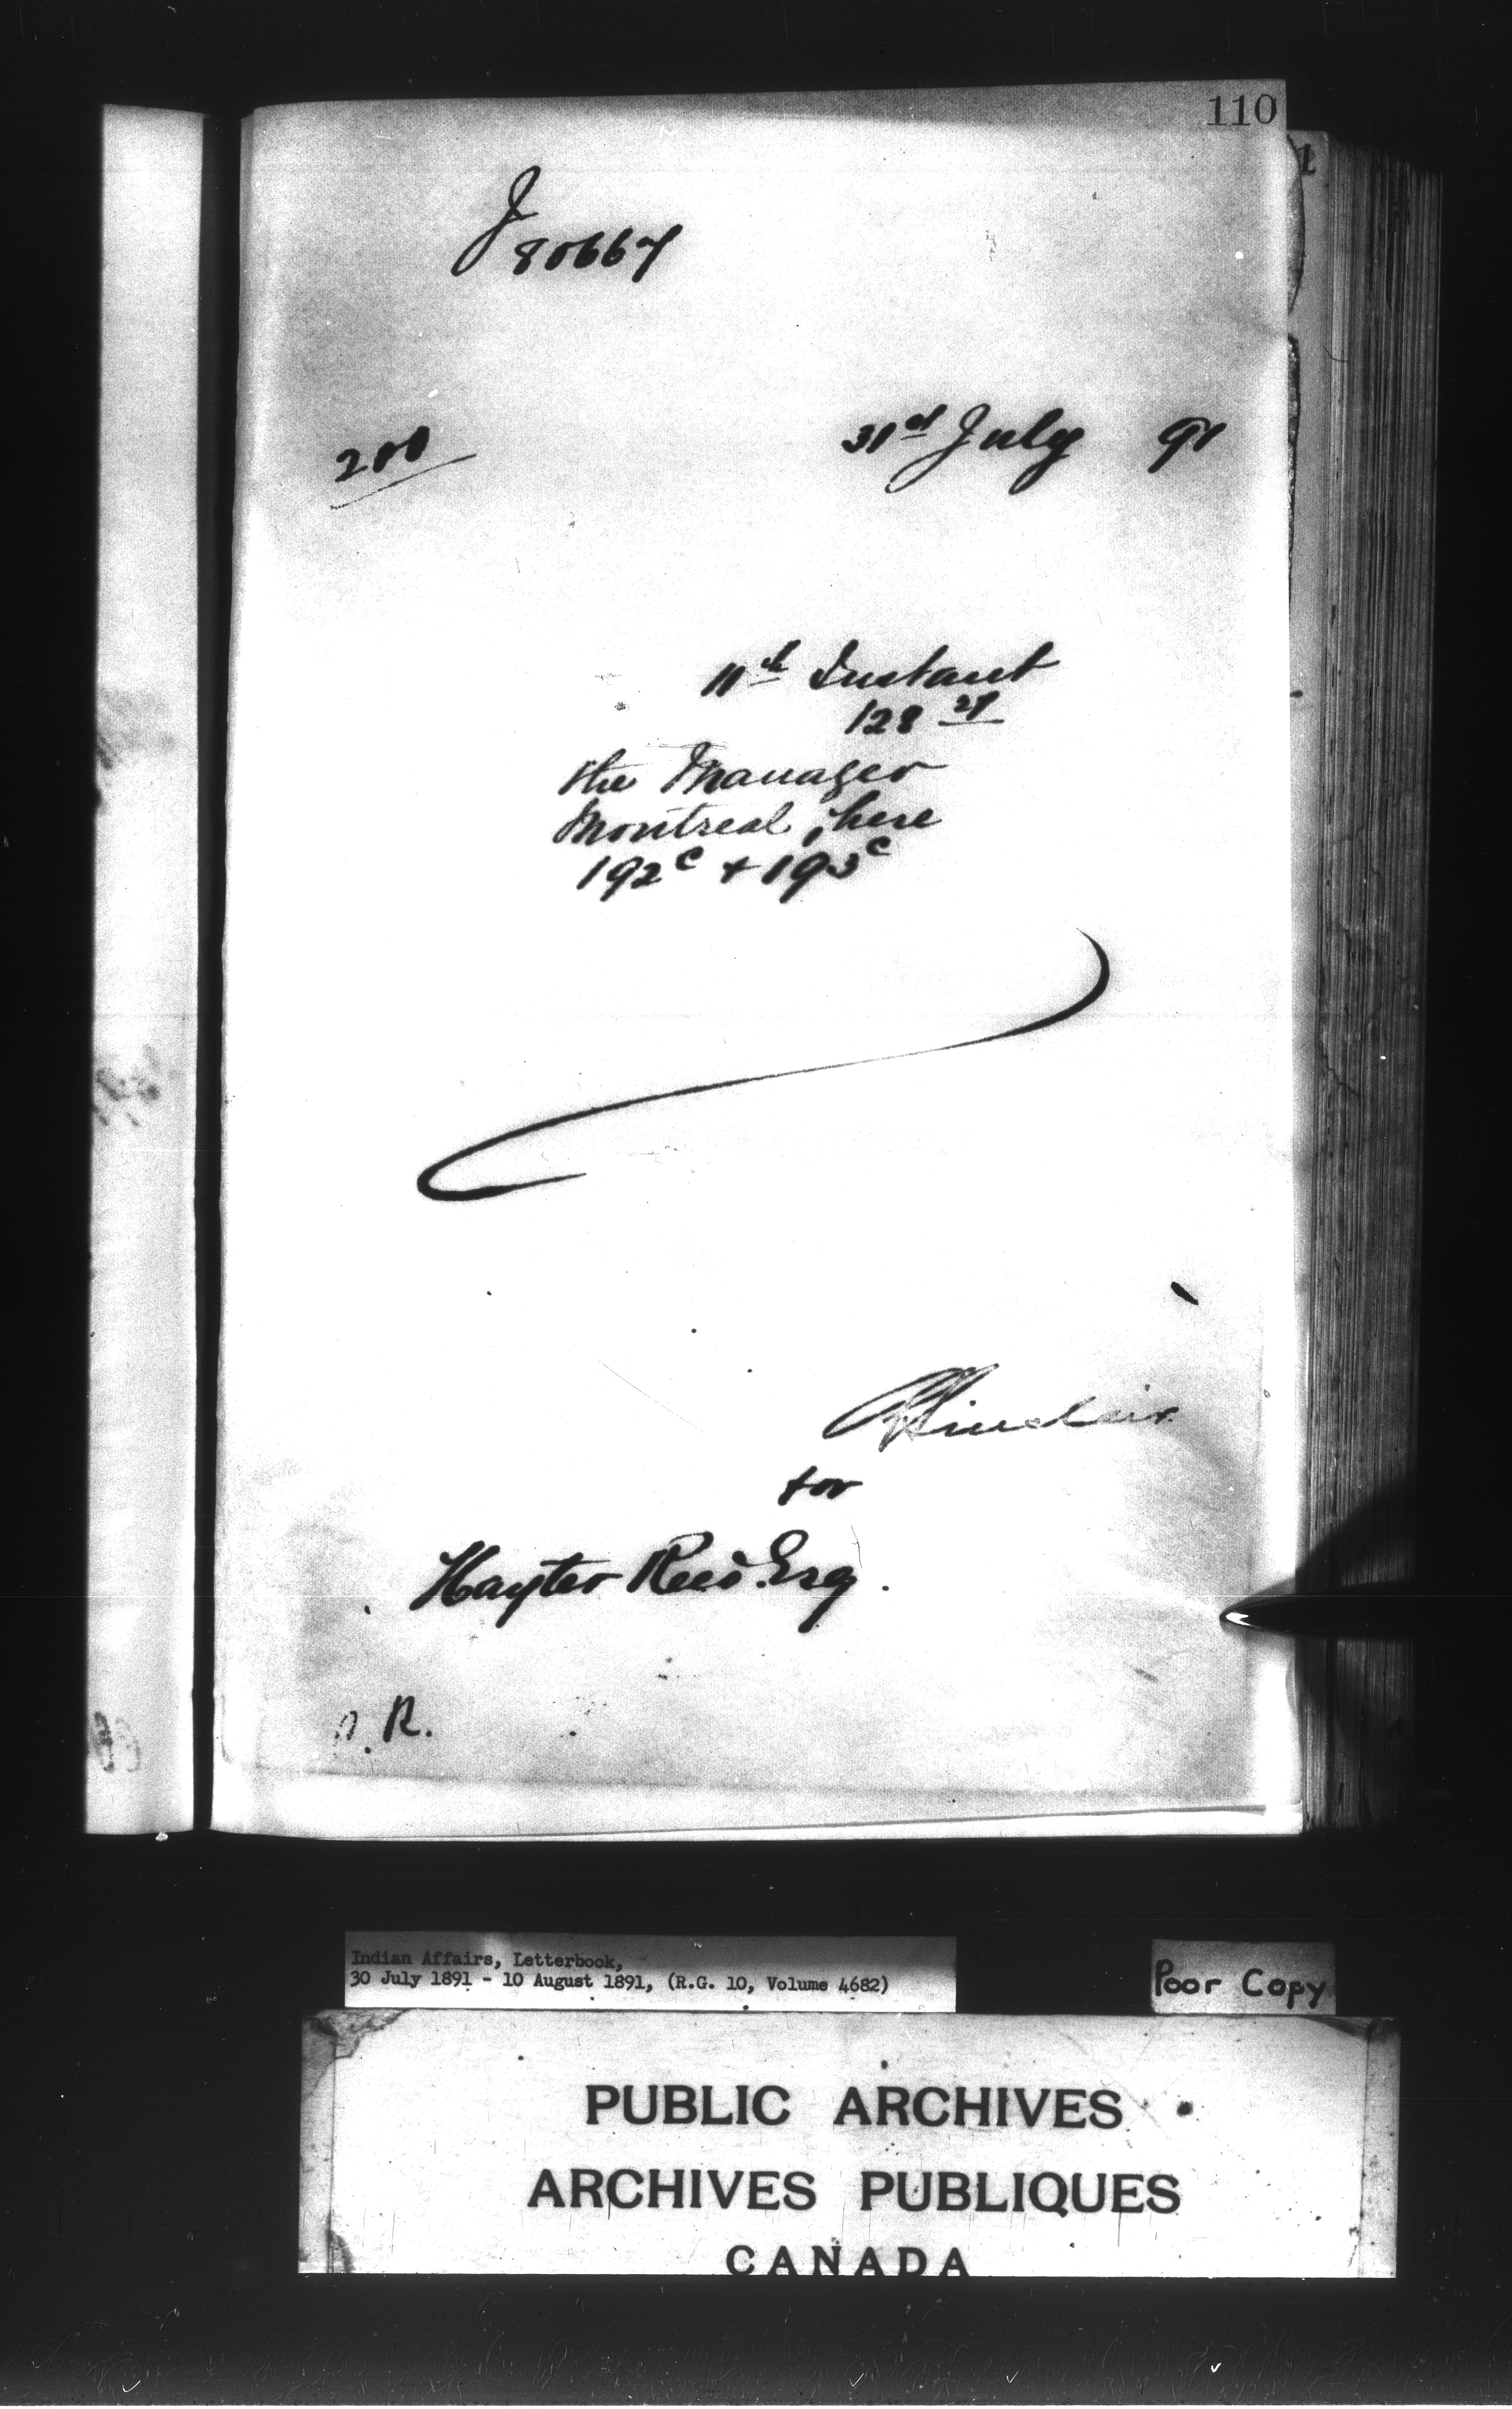 110
J
80667
200
31st July 91
11th Instant
128 29
the Manager
Montreal, here
192c + 193c
Sinclair
for
Hayter Reed Esq.
R.
Indian Affairs, Letterbook,
30 July 1891 - 10 August 1891, (R.G. 10, Volume 4682)
Poor Copy
PUBLIC ARCHIVES
ARCHIVES PUBLIQUES
CANADA